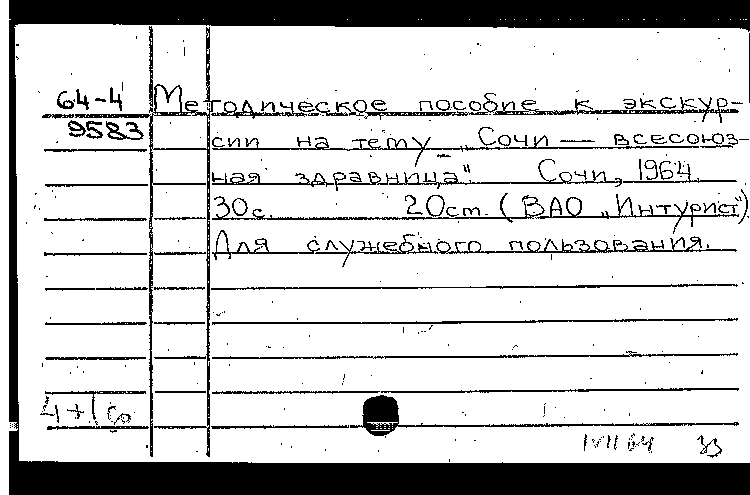 64-4 Методическое пособие к экскур-
9583 сии на тему „Сочи — всесоюз-
ная здравница". Сочи, 1964.
30с. 20ст. (ВАО „Интурист")
Для служебного пользования.
4+1
1 VII 64